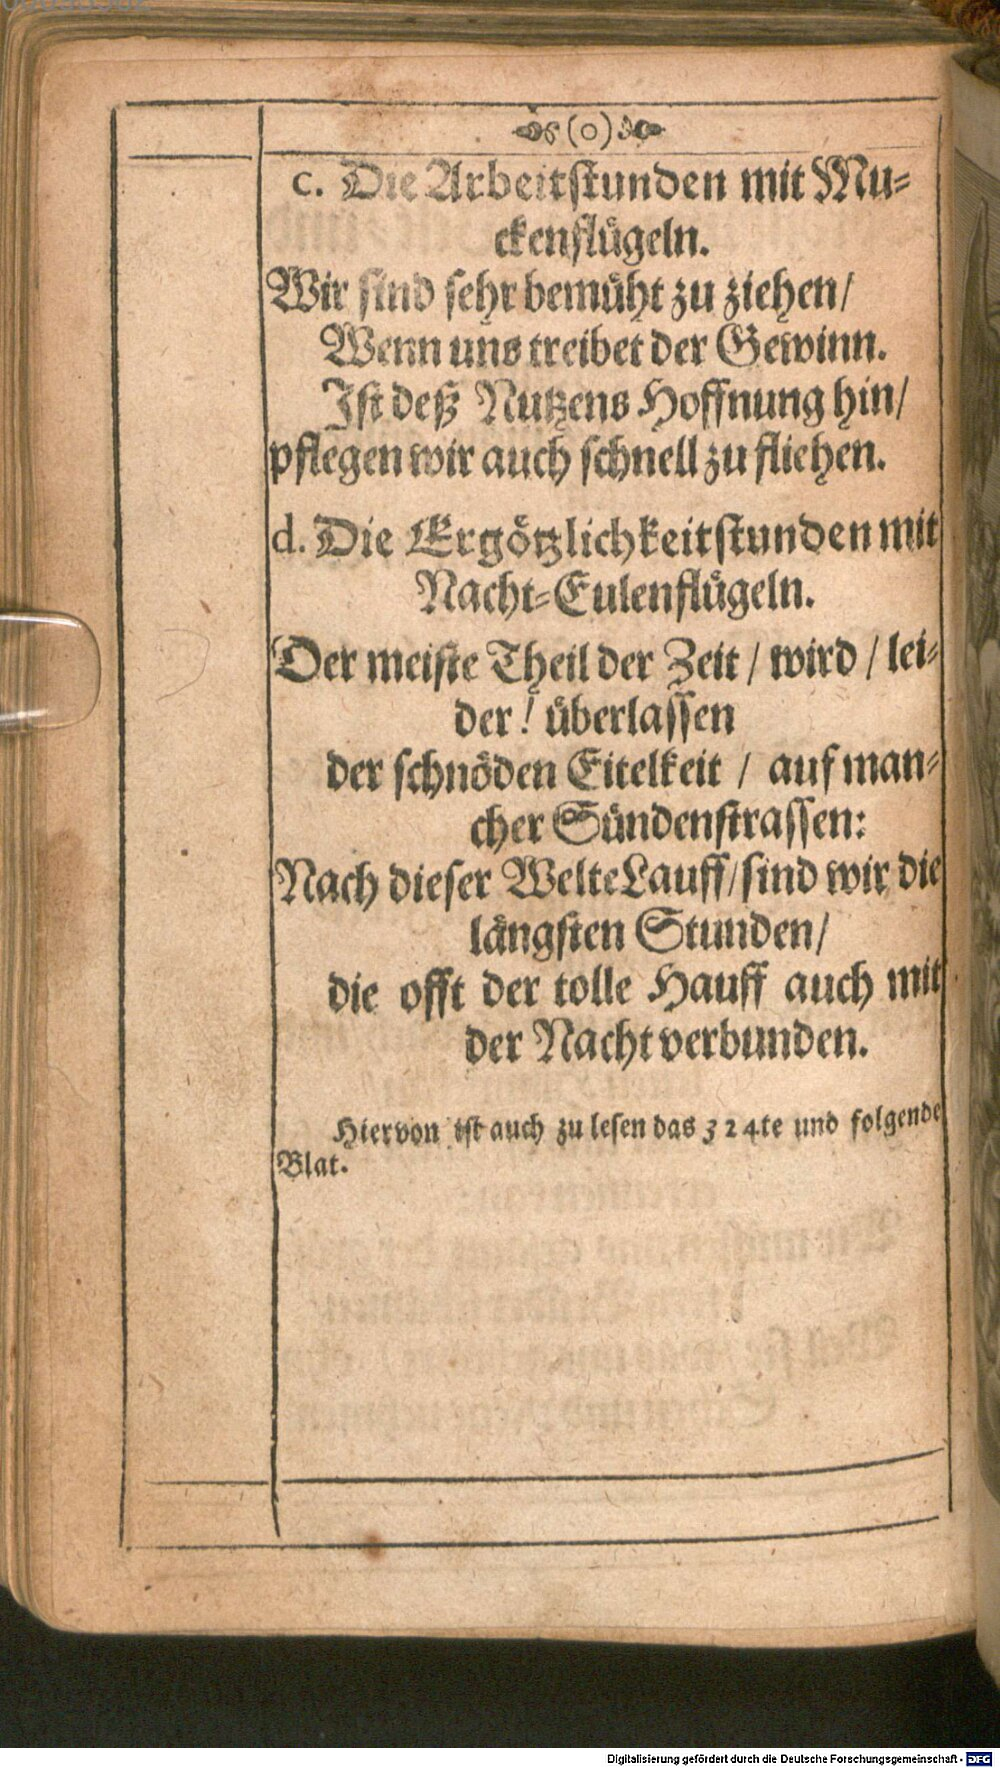 (o)
c. Die Arbeitstunden mit Mu-
ckenflügeln.
Wir sind sehr bemüht zu ziehen/
Wenn uns treibet der Gewinn.
Ist deß Nutzens Hoffnung hin/
pflegen wir auch schnell zu fliehen.
d. Die Ergötzlichkeitstunden mit
Nacht-Eulenflügeln.
Der meiste Theil der Zeit / wird / lei-
der! überlassen
der schnöden Eitelkeit / auf man-
cher Sündenstrassen:
Nach dieser Welte Lauff/ sind wir die
längsten Stunden/
die offt der tolle Hauff auch mit
der Nacht verbunden.
Hiervon ist auch zu lesen das 324te und folgende
Blat.
Digitalisierung gefördert durch die Deutsche Forschungsgemeinschaft - DFG